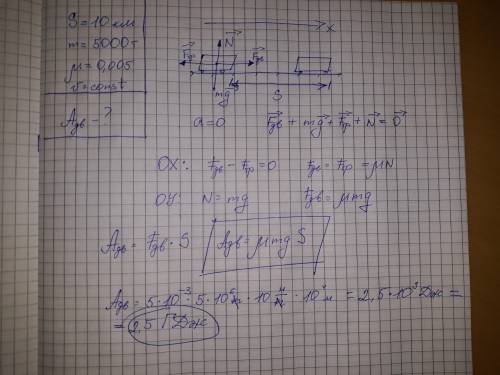 S = 10 км
m = 5000 т
μ = 0,005
v = const
Aдв – ?
x
N
Fтр
Fдв
mg
S
a = 0
Fдв + mg + Fтр + N = 0
OX: Fдв – Fтр = 0
Fдв = Fтр = μN
OY: N = mg
Fдв = μmg
Aдв = Fдв · S
Aдв = μmg S
Aдв = 5·10⁻³ · 5·10⁶ кг · 10 м · 10⁴ м = 2,5·10⁹ Дж =
= 2,5 ГДж